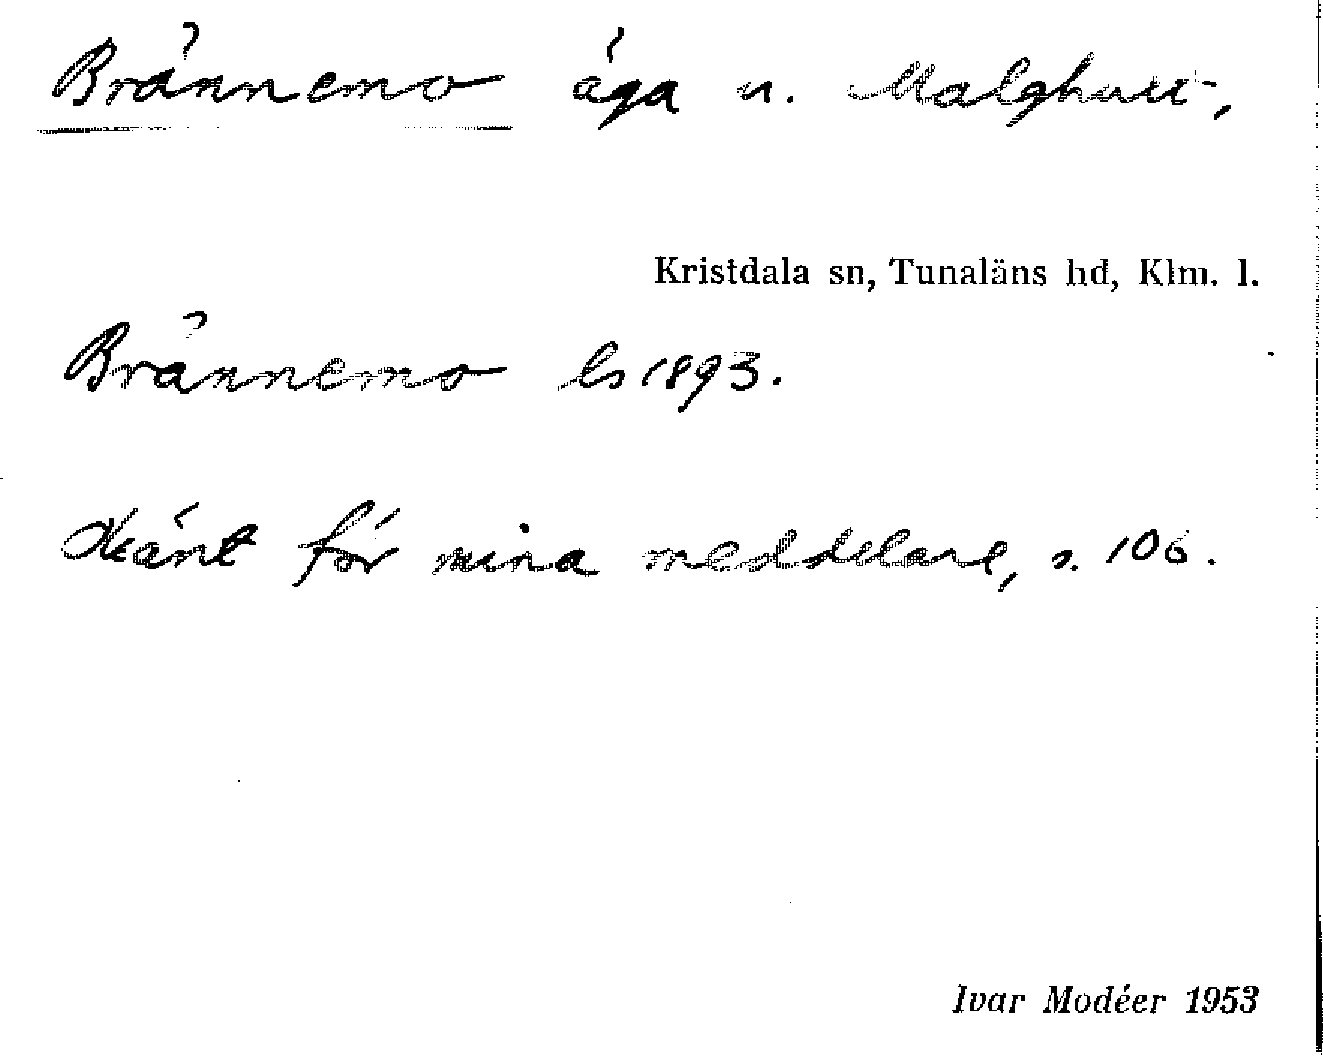 Brännemo äga u. Malghult,
Kristdala sn, Tunaläns hd, Klm. l.
Brännemo ls 1893.
Okänt för mina meddelare, s. 106.
Ivar Modéer 1953